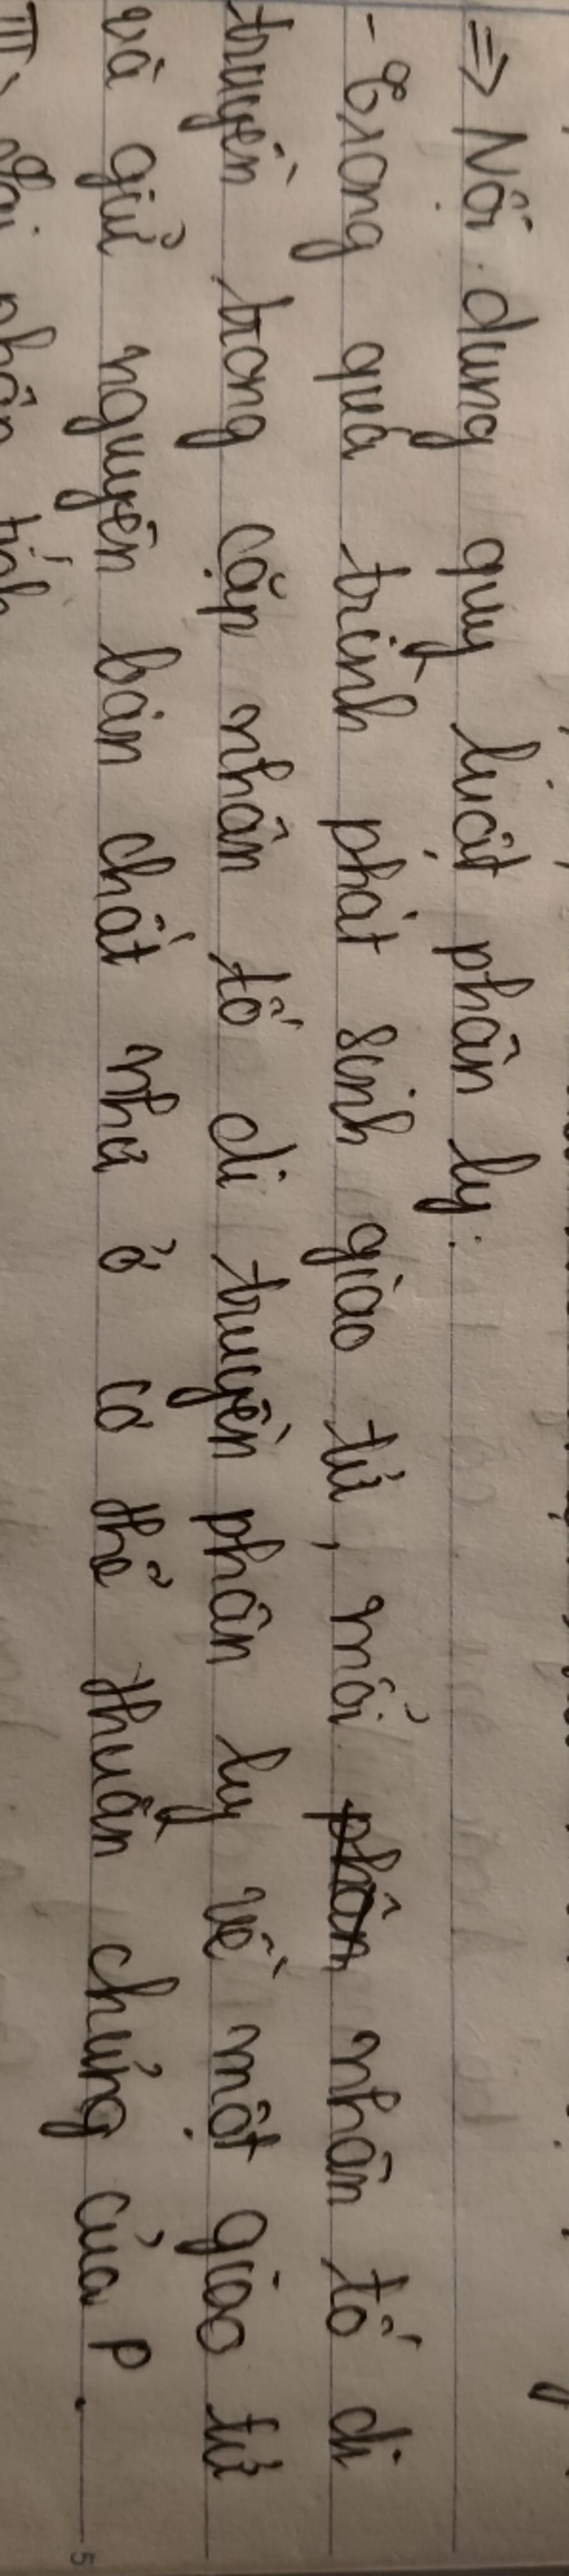 => Nội dung quy luật phân ly:
- Trong quá trình phát sinh giao tử, mỗi nhân tố di
truyền trong cặp nhân tố di truyền phân ly về một giao tử
và giữ nguyên bản chất như ở cơ thể thuần chủng của P.
III,
5